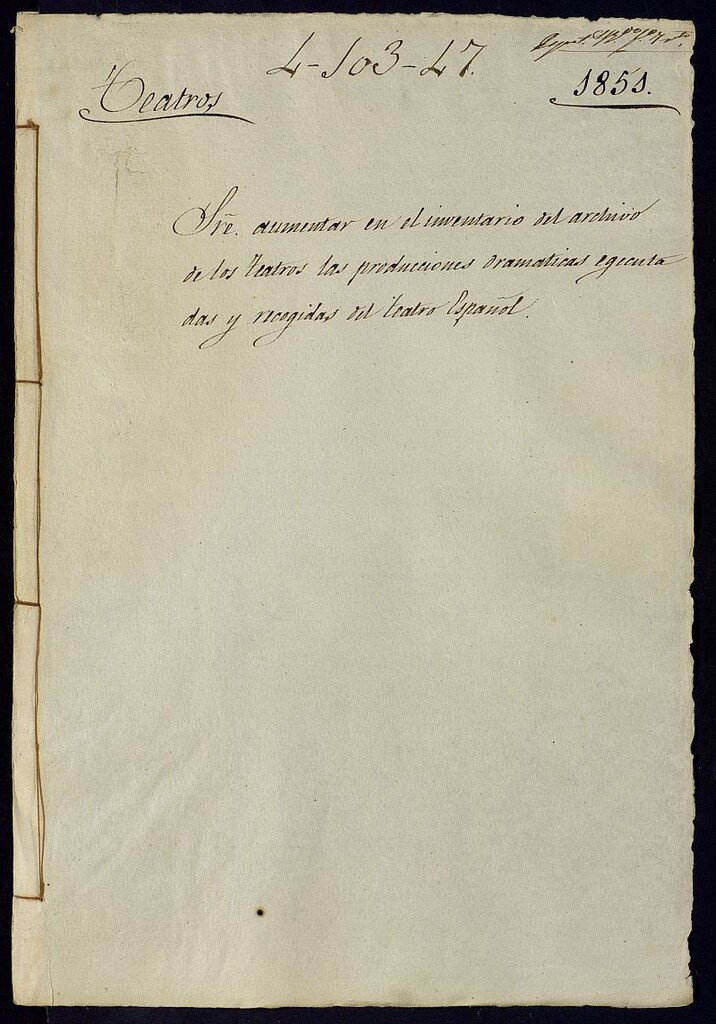 4-103-47.
Teatros
1851.
Sre. aumentar en el inventario del archivo
de los teatros las producciones dramaticas egecuta
das y recogidas del teatro Español.